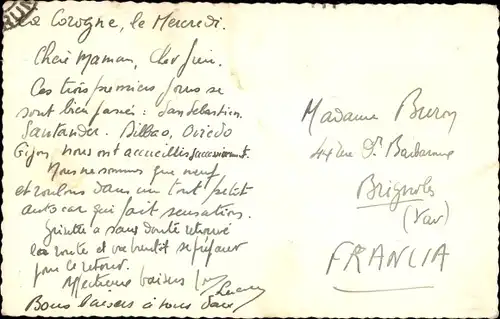 La Corogne, le Mercredi.
Chère Maman, Cher
Ces trois premiers jours se
sont bien passés : San Sebastien
Santander. Bilbao, Oviedo
Gijon nous ont accueillis successivement.
Nous ne sommes que neuf
et roulons dans un tout petit
autocar qui fait sensation.
a sans doute retrouvé
la route et va bientôt se préparer
pour le retour.
baisers
Bons baisers à tous deux
Madame Buron
44 rue Dr Barbaroux
Brignoles
(Var)
FRANCIA